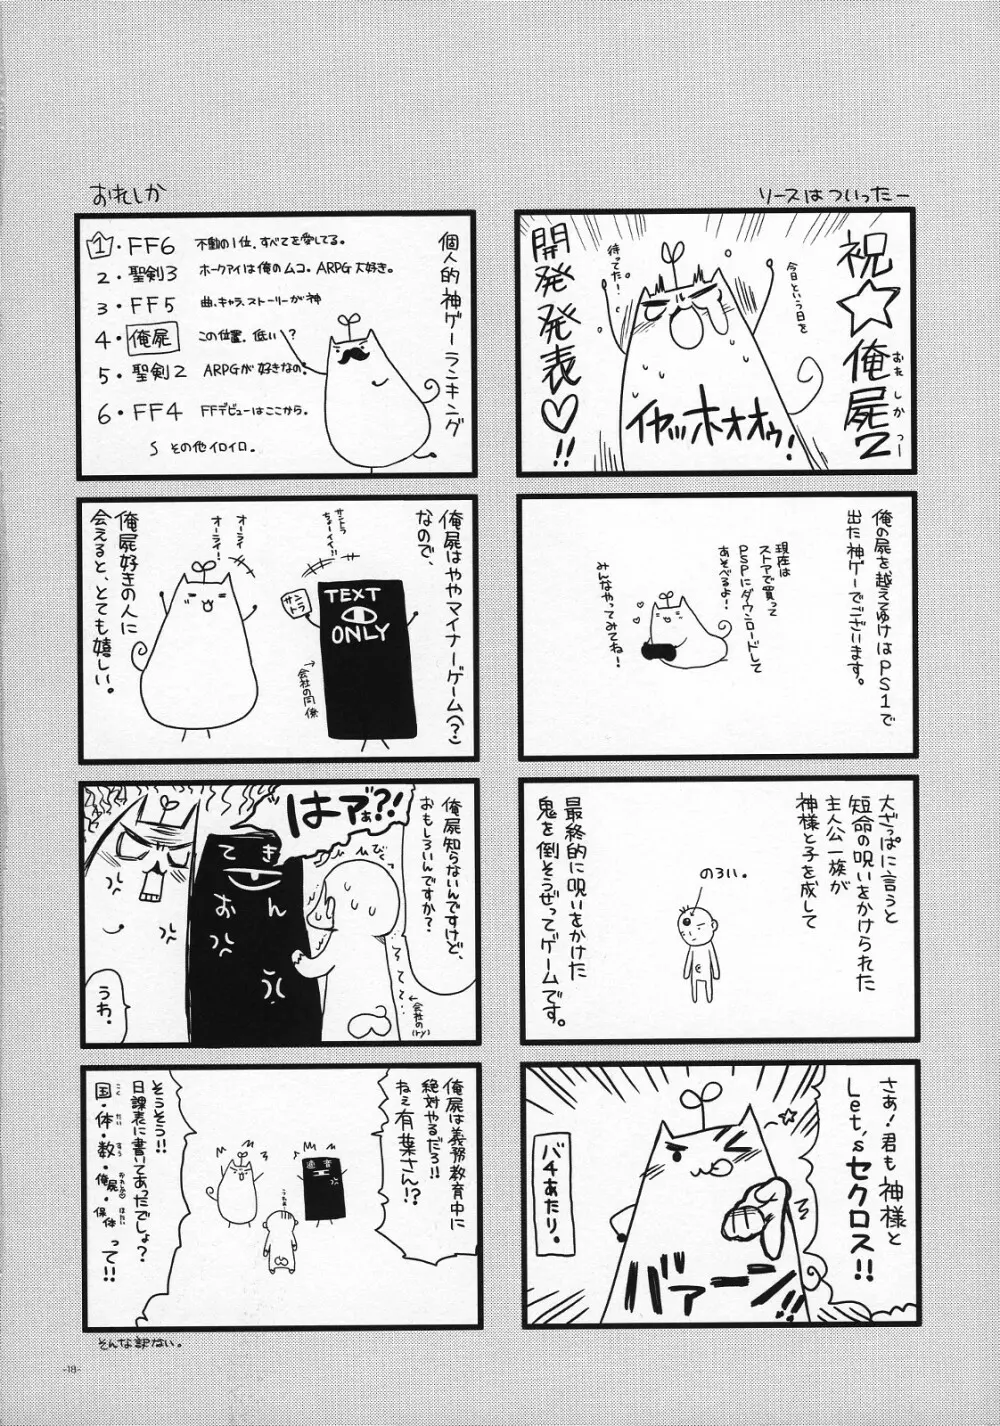 ソースはついったー
祝☆俺屍2
おれ しか つー
開発発表♡!!
今日という日を
待ってた!
イヤッホオオゥ!
俺の屍を越えてゆけはPS1で
出た神ゲーでございます。
現在は
ストアで買って
PSPにダウンロードして
あそべるよ!
みんなやってみてね!
大ざっぱに言うと
短命の呪いをかけられた
主人公一族が
神様と子を成して
のろい。
最終的に呪いをかけた
鬼を倒そうぜってゲームです。
さあ!君も神様と
Let'sセクロス!!
バチあたり。
バァーン!!
おれしか
個人的神ゲーランキング
1・FF6 不動の1位、すべてを愛してる。
2・聖剣3 ホークアイは俺のムコ。ARPG大好き。
3・FF5 曲、キャラ、ストーリーが神
4・俺屍 この位置、低い?
5・聖剣2 ARPGが好きなの。
6・FF4 FFデビューはここから。
S その他イロイロ。
俺屍はややマイナーゲーム(?)
なので、
サントラ
ちょーイイ!!
サントラ
TEXT
ONLY
→会社の同僚
オーライ
オーライ!
俺屍好きの人に
会えると、とても嬉しい。
俺屍知らないんですけど、
おもしろいんですか?
はァぁ?!
びくっ
てき
おん
←会社の(ry)
うわ。
俺屍は義務教育中に
絶対やるだろ!!
ねえ有葉さん!?
適音
そうそう!!
日課表に書いてあったでしょ?
国・体・数・俺屍・保体 って!!
こく たい すう おれしか ほたい
そんな訳ない。
-18-